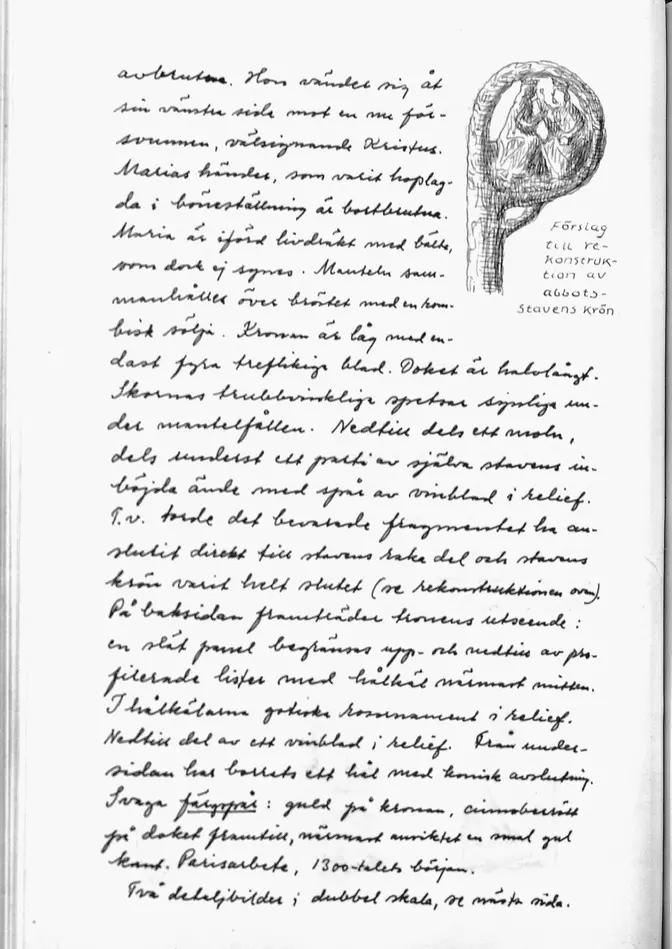 avbrutna. Hon vänder sig åt
sin vänstra sida mot en nu för-
svunnen, välsignande Kristus.
Marias händer, som varit hoplag-
da i böneställning är bortbrutna.
Maria är iförd livdräkt med bälte,
som dock ej synes. Manteln sam-
manhålles över bröstet med en rom-
bisk sölja. Kronan är låg med en-
dast fyra treflikiga blad. Doket är halvlångt.
Skornas trubbvinkliga spetsar synliga un-
der mantelfållen. Nedtill dels ett moln,
dels underst ett parti av själva stavens in-
böjda ände med spår av vinblad i relief.
T.v. torde det bevarade fragmentet ha an-
slutit direkt till stavens raka del och stavens
krön varit helt slutet (se rekonstruktionen ovan).
På baksidan framträder tronens utseende:
en slät panel begränsas upp- och nedtill av pro-
filerade lister med hålkäl närmast mitten.
I hålkälarna gotiska rosornament i relief.
Nedtill del av ett vinblad i relief. Från under-
sidan har borrats ett hål med konisk avslutning.
Svaga färgspår: guld på kronan, cinnoberrött
på doket framtill, närmast ansiktet en smal gul
kant. Parisarbete, 1300-talets början.
Två detaljbilder i dubbel skala, se nästa sida.
Förslag
till re-
konstruk-
tion av
abbots-
stavens krön